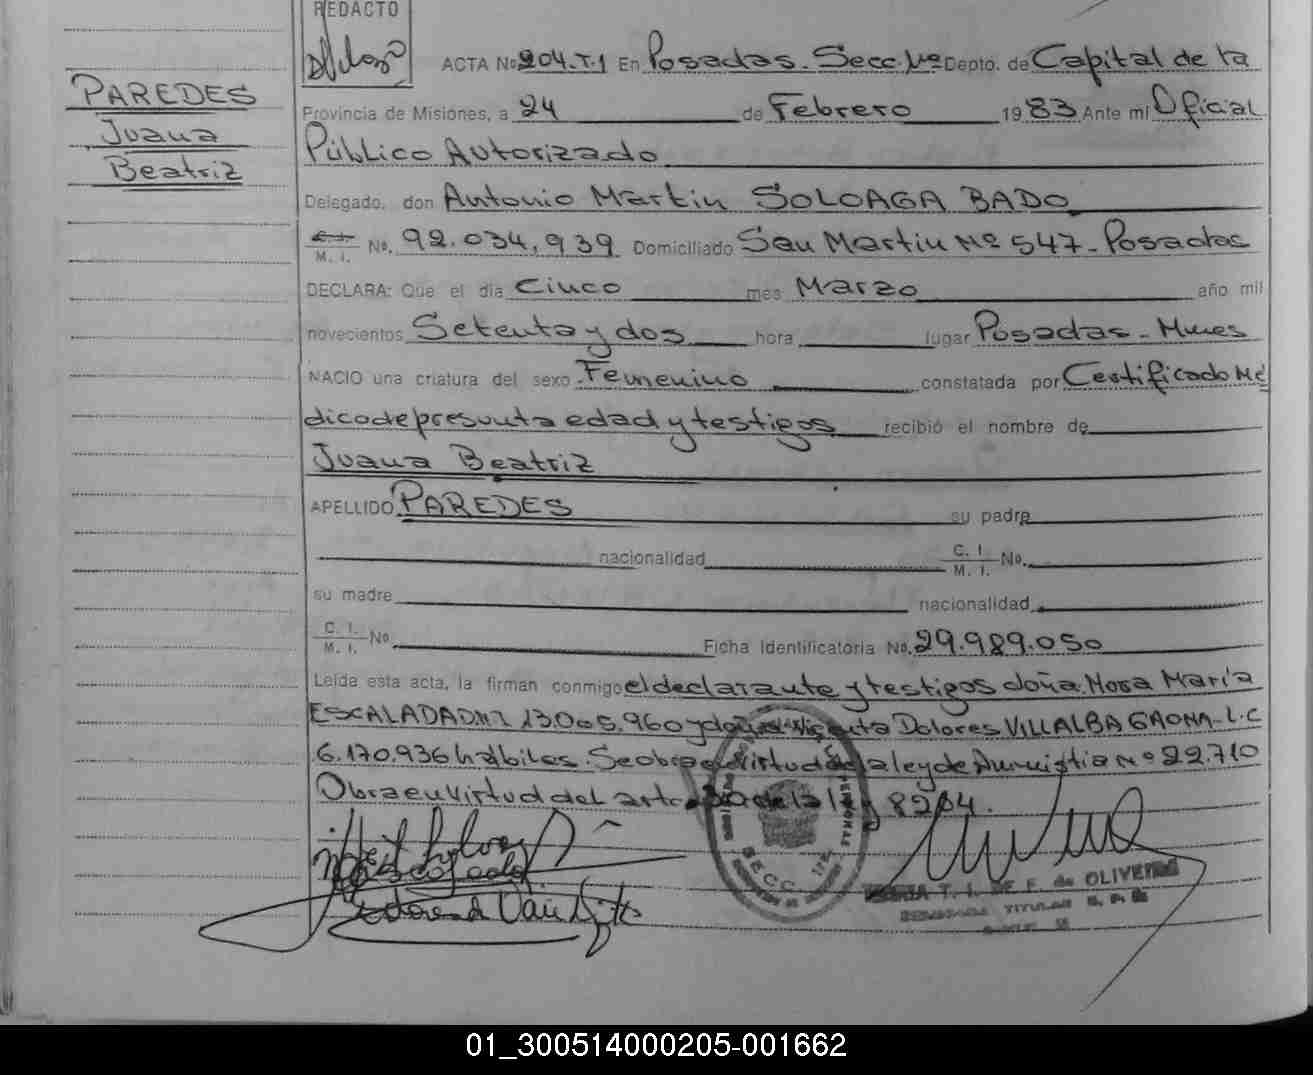 REDACTO
ACTA No 204.T.1 En Posadas. Secc. 1ra Depto. de Capital de la
PAREDES
Juana
Beatriz
Provincia de Misiones, a 24 de Febrero 1983 Ante mi Oficial
Público Autorizado
Delegado, don Antonio Martin SOLOAGA BADO
M. I. No. 92.034,939 Domiciliado San Martin Nº 547 - Posadas
DECLARA: Que el día Cinco mes Marzo año mil
novecientos Setenta y dos hora lugar Posadas - Mnes
NACIO una criatura del sexo Femenino constatada por Certificado Mé
dico de presunta edad y testigos recibió el nombre de
Juana Beatriz
APELLIDO PAREDES su padre
nacionalidad C. I. M. I. No.
su madre nacionalidad
C. I. M. I. No. Ficha Identificatoria No. 29.989.050
Leída esta acta, la firman conmigo el declarante y testigos doña Nora María
ESCALADA DNI 13.005.960 y doña Vicenta Dolores VILLALBA GAONA - L.C
6.170.936 hábiles. Se obra en virtud de la ley de Amnistia Nº 22.710
Obra en virtud del art. 30 de la ley 8204.
SECC. 1ra
T. I. DE F. de OLIVEIRA
TITULAR
01_300514000205-001662